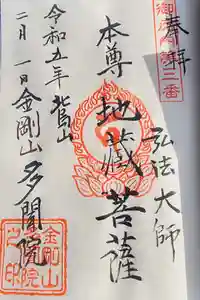 奉拜
第三番
弘法大師
本尊地藏菩薩
令和五年 北烏山
二月一日金剛山多聞院
金剛山
多聞院
之印